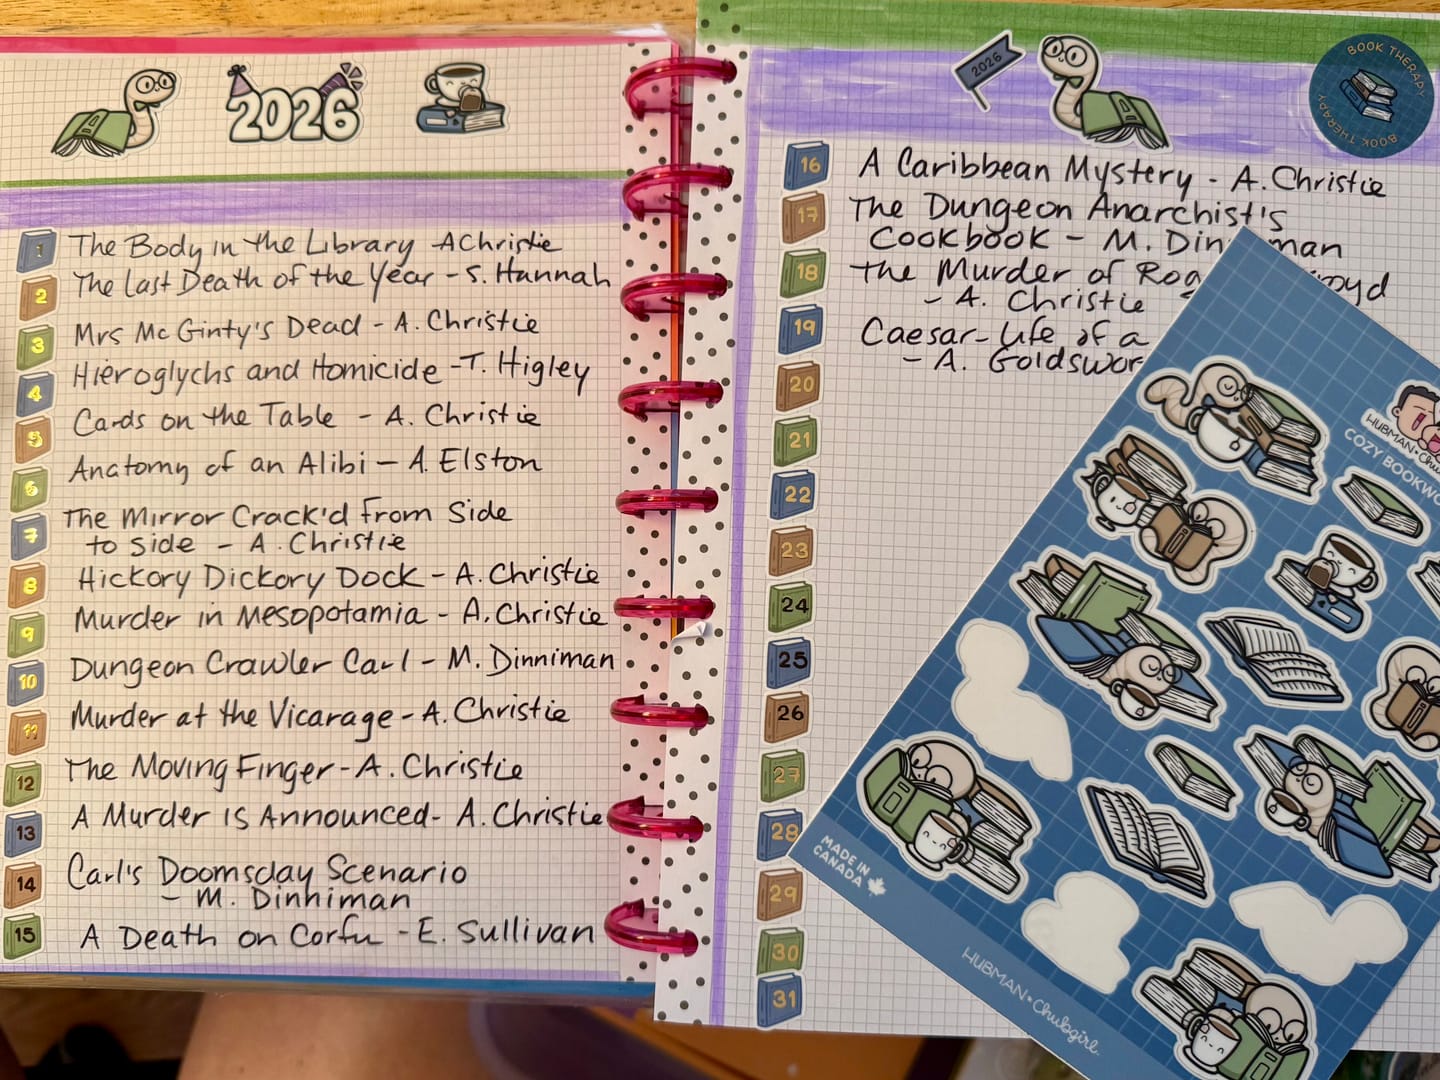 2026
1 The Body in the Library - A Christie
2 The Last Death of the Year - S. Hannah
3 Mrs McGinty's Dead - A. Christie
4 Hieroglychs and Homicide - T. Higley
5 Cards on the Table - A. Christie
6 Anatomy of an Alibi - A. Elston
7 The Mirror Crack'd from Side
to Side - A. Christie
8 Hickory Dickory Dock - A. Christie
9 Murder in Mesopotamia - A. Christie
10 Dungeon Crawler Carl - M. Dinniman
11 Murder at the Vicarage - A. Christie
12 The Moving Finger - A. Christie
13 A Murder is Announced - A. Christie
14 Carl's Doomsday Scenario
- M. Dinniman
15 A Death on Corfu - E. Sullivan
2026
BOOK THERAPY
BOOK THERAPY
16 A Caribbean Mystery - A. Christie
17 The Dungeon Anarchist's
Cookbook - M. Din man
18 The Murder of Rog oyd
- A. Christie
19 Caesar - Life of a
- A. Goldswor
20
21
22
23
24
25
26
27
28
29
30
31
HUBMAN
COZY BOOKWO
MADE IN
CANADA
HUBMAN • Chubgirl